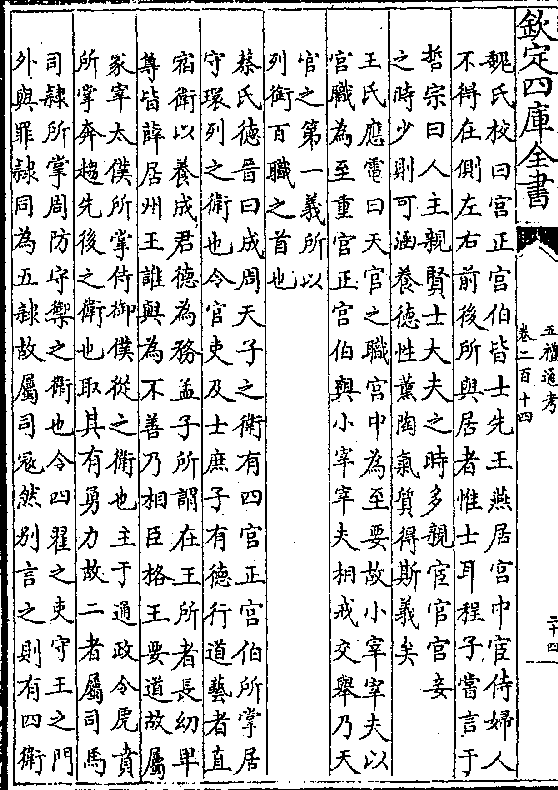 欽定四庫全書
五禮通考
卷二百十四
二十四
魏氏校曰宮正宮伯皆士先王燕居宮中宦侍婦人
不得在側左右前後所與居者惟士耳程子嘗言于
哲宗曰人主親賢士大夫之時多親宦官官妾
之時少則可涵養德性薰陶氣質得斯義矣
王氏應電曰天官之職宮中為至要故小宰宰夫以
官職為至重宮正宮伯與小宰宰夫相戒交舉乃天
官之第一義所以
列衛百職之首也
蔡氏德晉曰成周天子之衛有四宮正宮伯所掌居
守環列之衛也令官吏及士庶子有德行道藝者直
宿衛以養成君德為務孟子所謂在王所者長幼卑
尊皆薛居州王誰與為不善乃相臣格王要道故屬
冡宰太僕所掌侍御僕從之衛也主于通政令虎賁
所掌奔趨先後之衛也取其有勇力故二者屬司馬
司隸所掌周防守禦之衛也令四翟之吏守王之門
外與罪隸同為五隸故屬司寇然别言之則有四衛